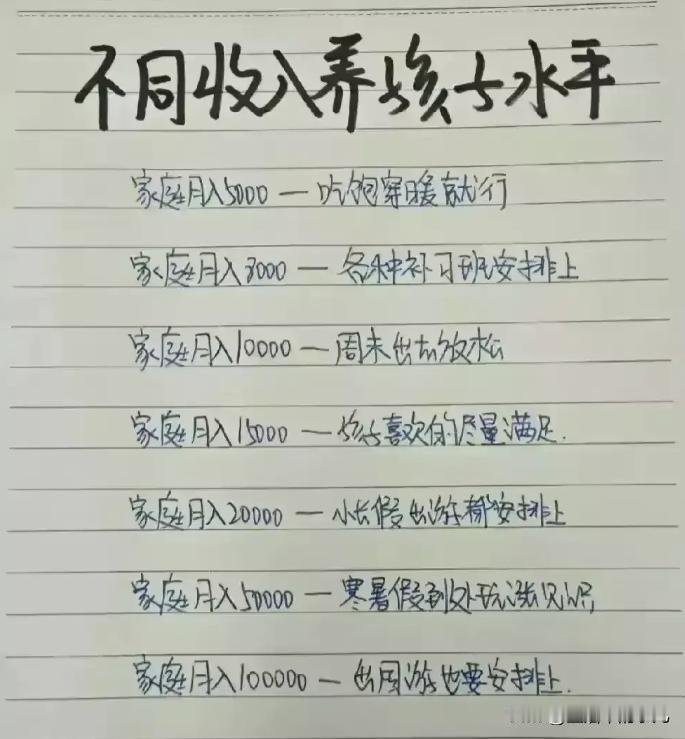 不同收入养孩子水平
家庭月入5000 — 吃饱穿暖就行
家庭月入8000 — 各种补习班安排上
家庭月入10000 — 周末出去放松
家庭月入15000 — 孩子喜欢的尽量满足.
家庭月入20000 — 小长假出游都安排上
家庭月入50000 — 寒暑假到处玩涨见识
家庭月入100000 — 出国游也要安排上.